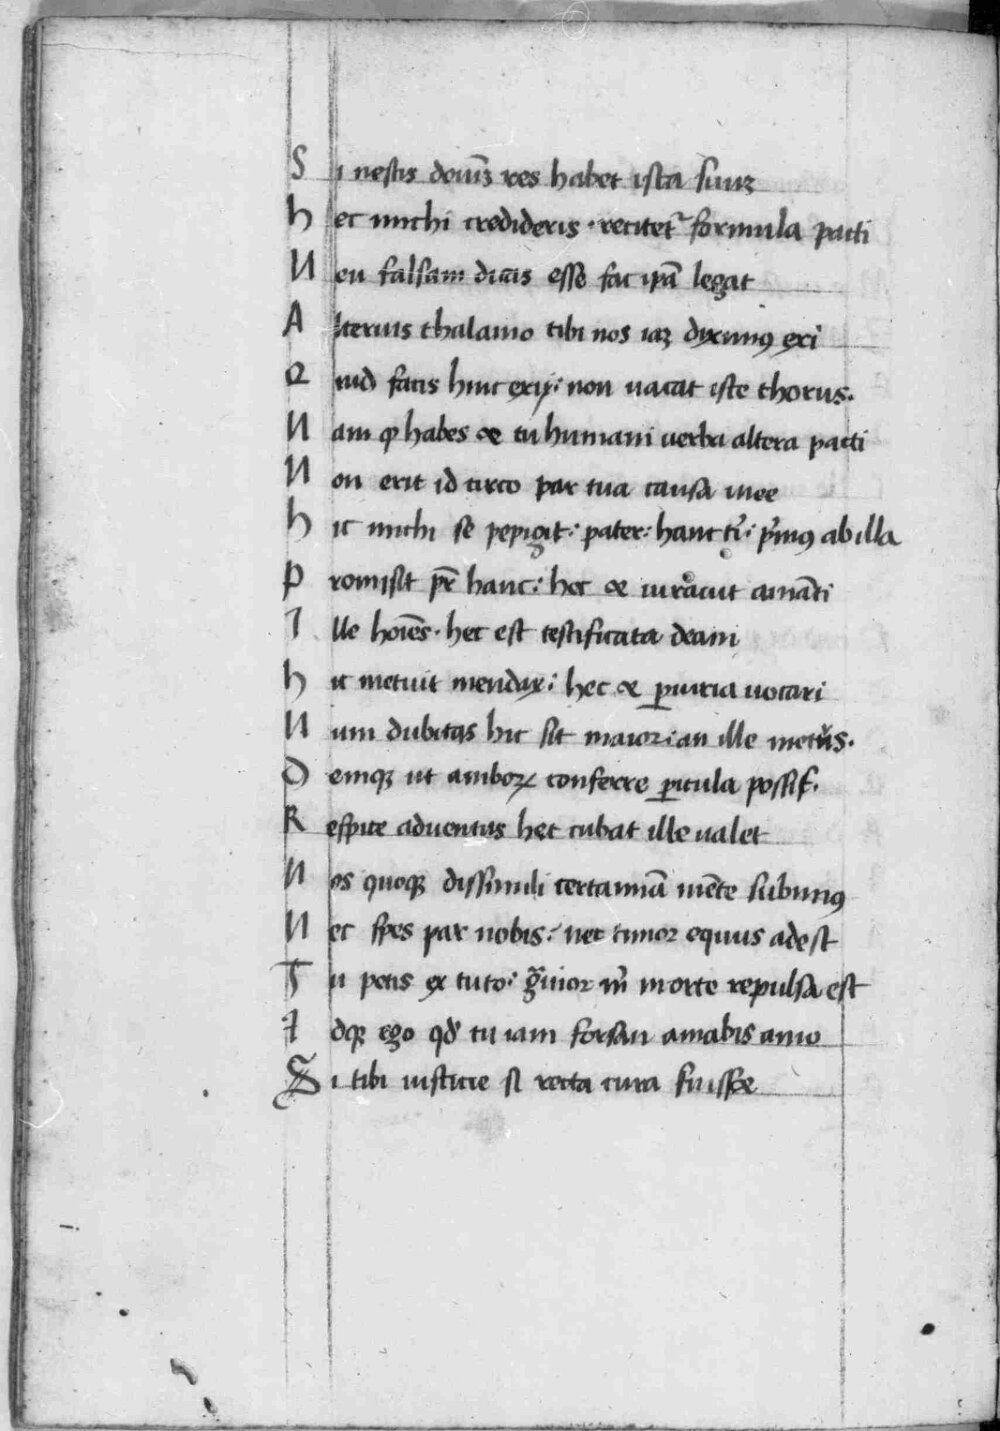 Si nescis dominũ res habet ista suuꝫ
hec michi credideris · recitet᷑ formula pacti
Neu falsam dicas esse fac ip̃ã legat
Alterius thalamo tibi nos iaꝫ diximꝰ exi
Quid facis hinc exij : non uacat iste thorus.
Nam ꝙ habes & tu humani uerba altera pacti
Non erit id circo par tua causa mee
hic michi se pepigit : pater : hanc t̃i : p̃imꝰ ab illa
promisit pr̃ hanc : hec & iurauit amãti
Ille hoĩes · hec est testificata deam
hic metuit mendax : hec & ꝑiuria uocari
Num dubitas hic sit maior : an ille metus.
Deniqꝫ ut amboꝝ conferre ꝑicula possis.
Respice aduentus hec cubat ille ualet
Nos quoqꝫ dissimili certamiã mẽte subimꝰ
Nec spes par nobis : nec timor equus adest
Tu petis ex tuto : g̃uior m̃ morte repulsa est
Idqꝫ ego qđ tu iam forsan amabis amo
Si tibi iusticie si recta cura fuisset